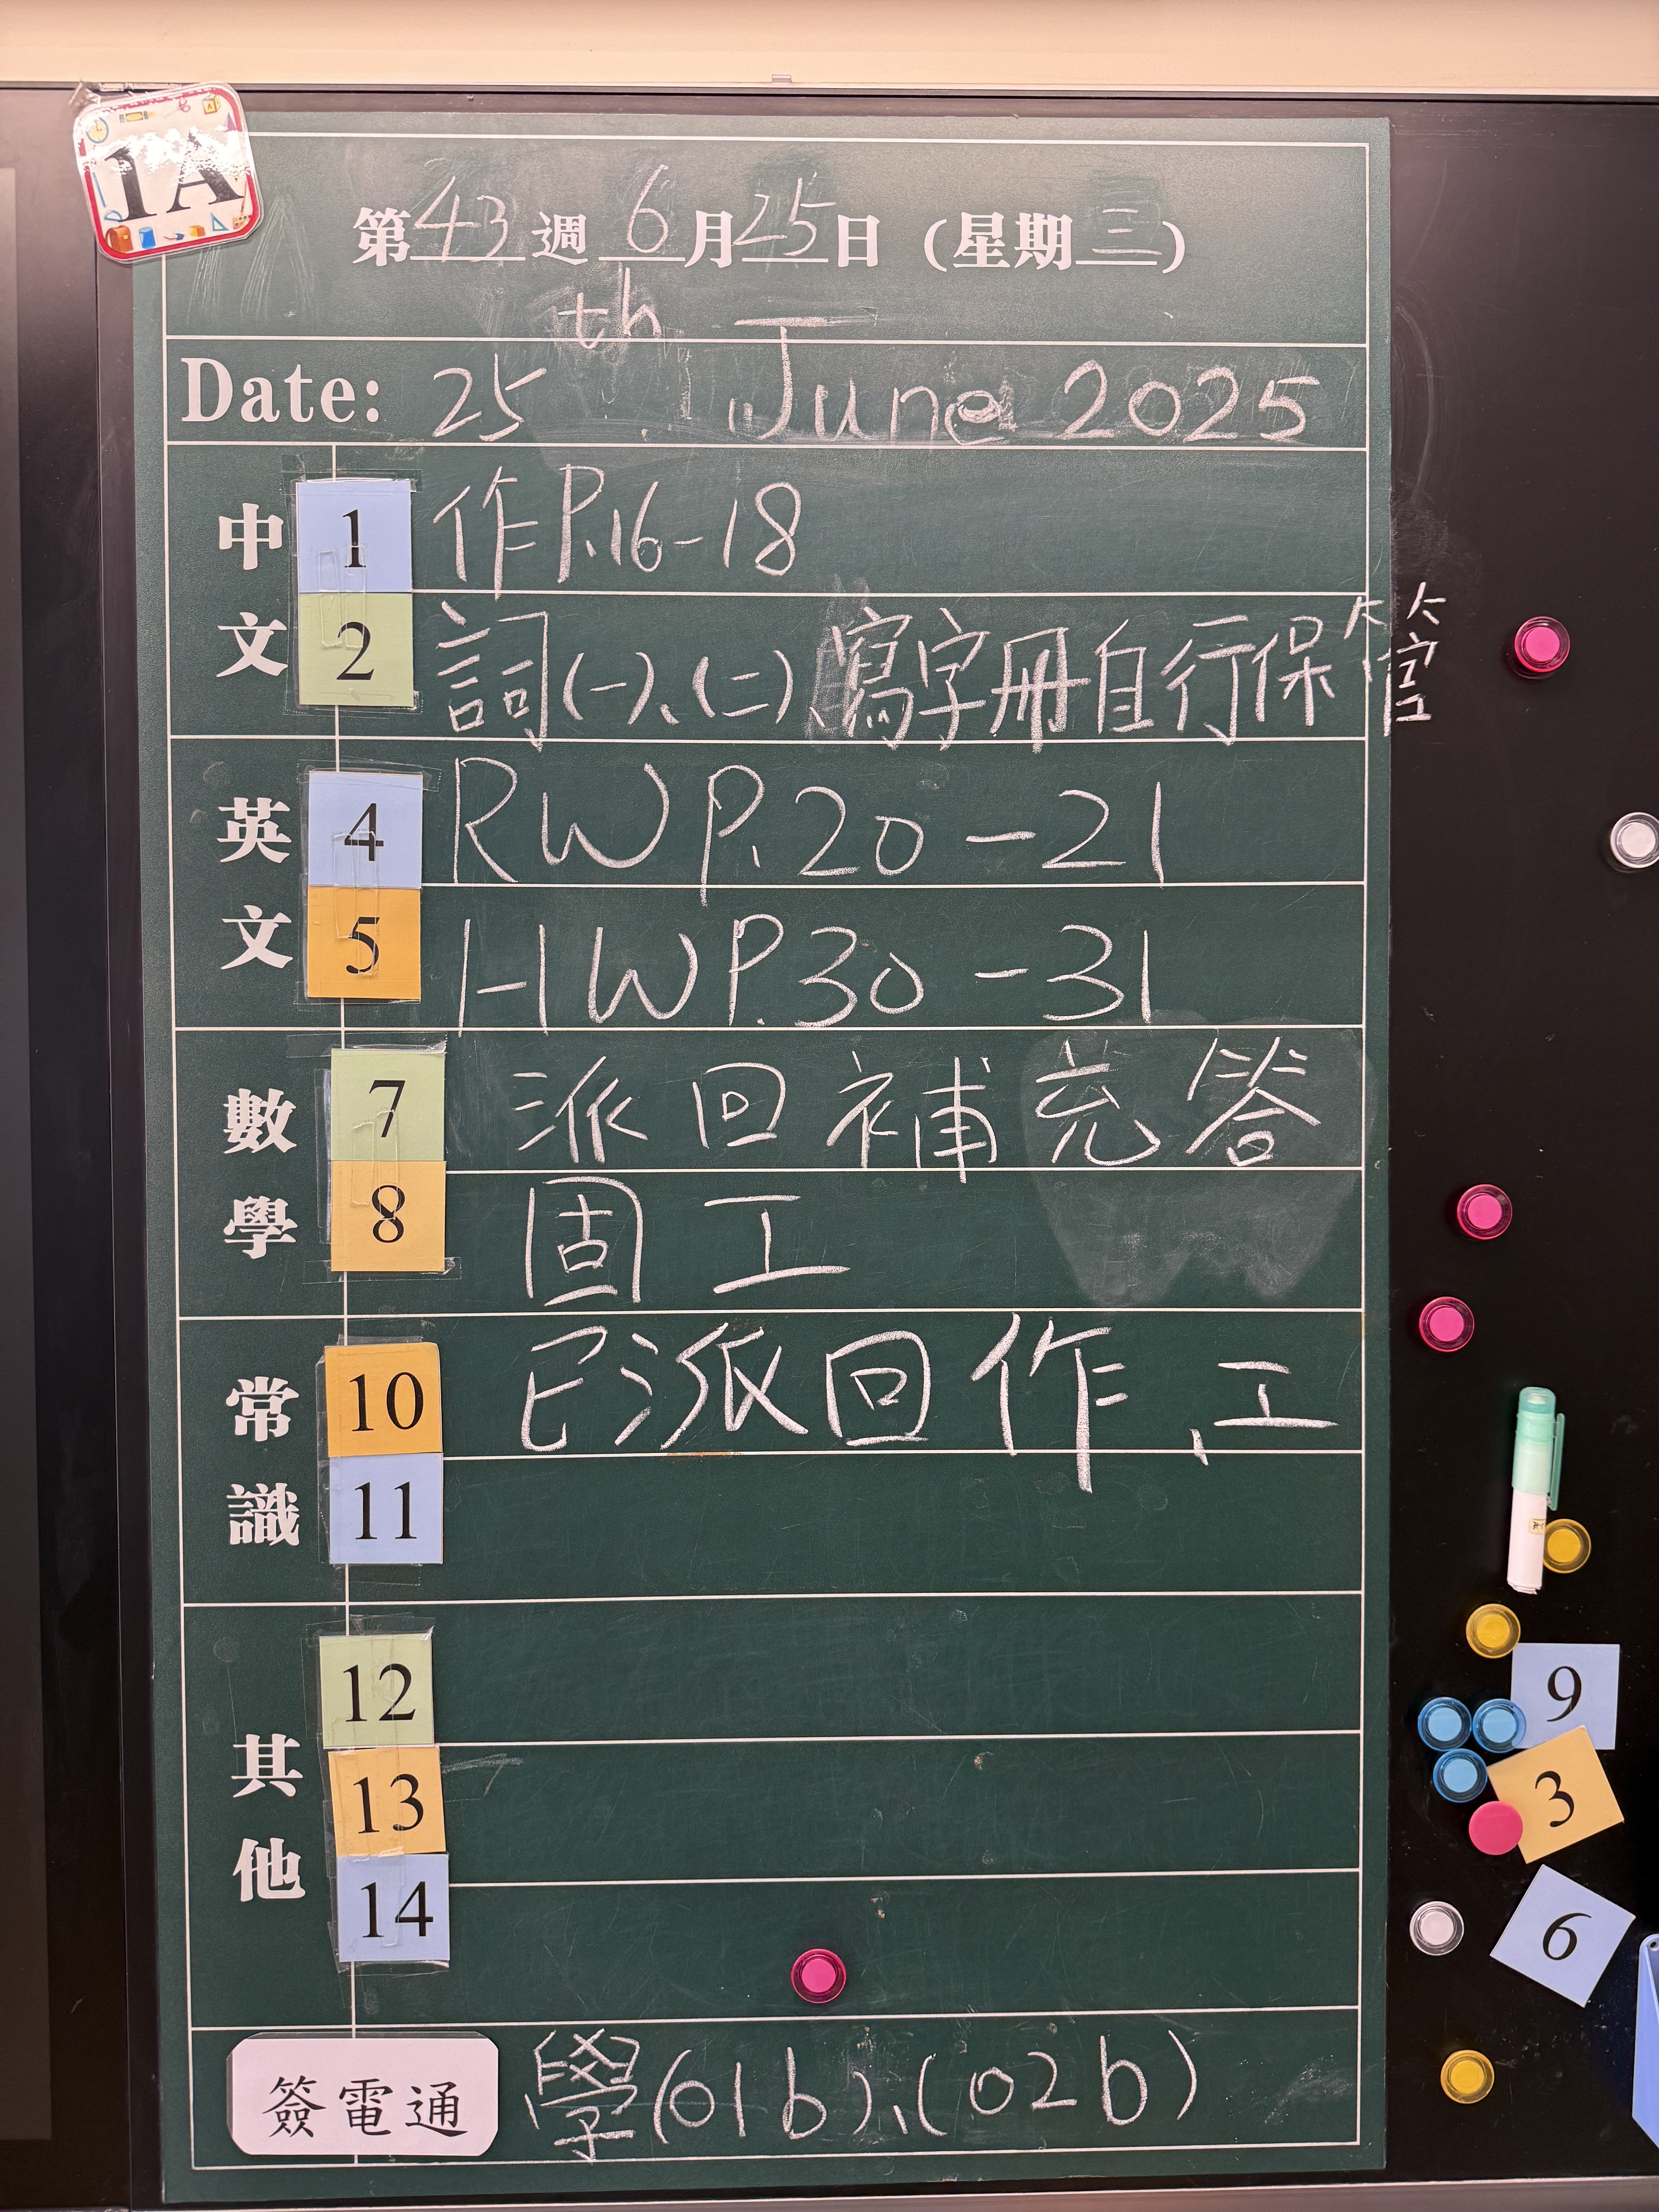 1A
第43週 6月25日(星期三)
Date: 25th June 2025
中文
1 作P.16-18
2 詞(一)、(二)、寫字冊自行保管
英文
4 RW P.20-21
5 HW P.30-31
數學
7 派回補充答
8 固工
常識
10 已派回作、工
11
其他
12
13
14
9
3
6
簽電通 學(01b)、(02b)